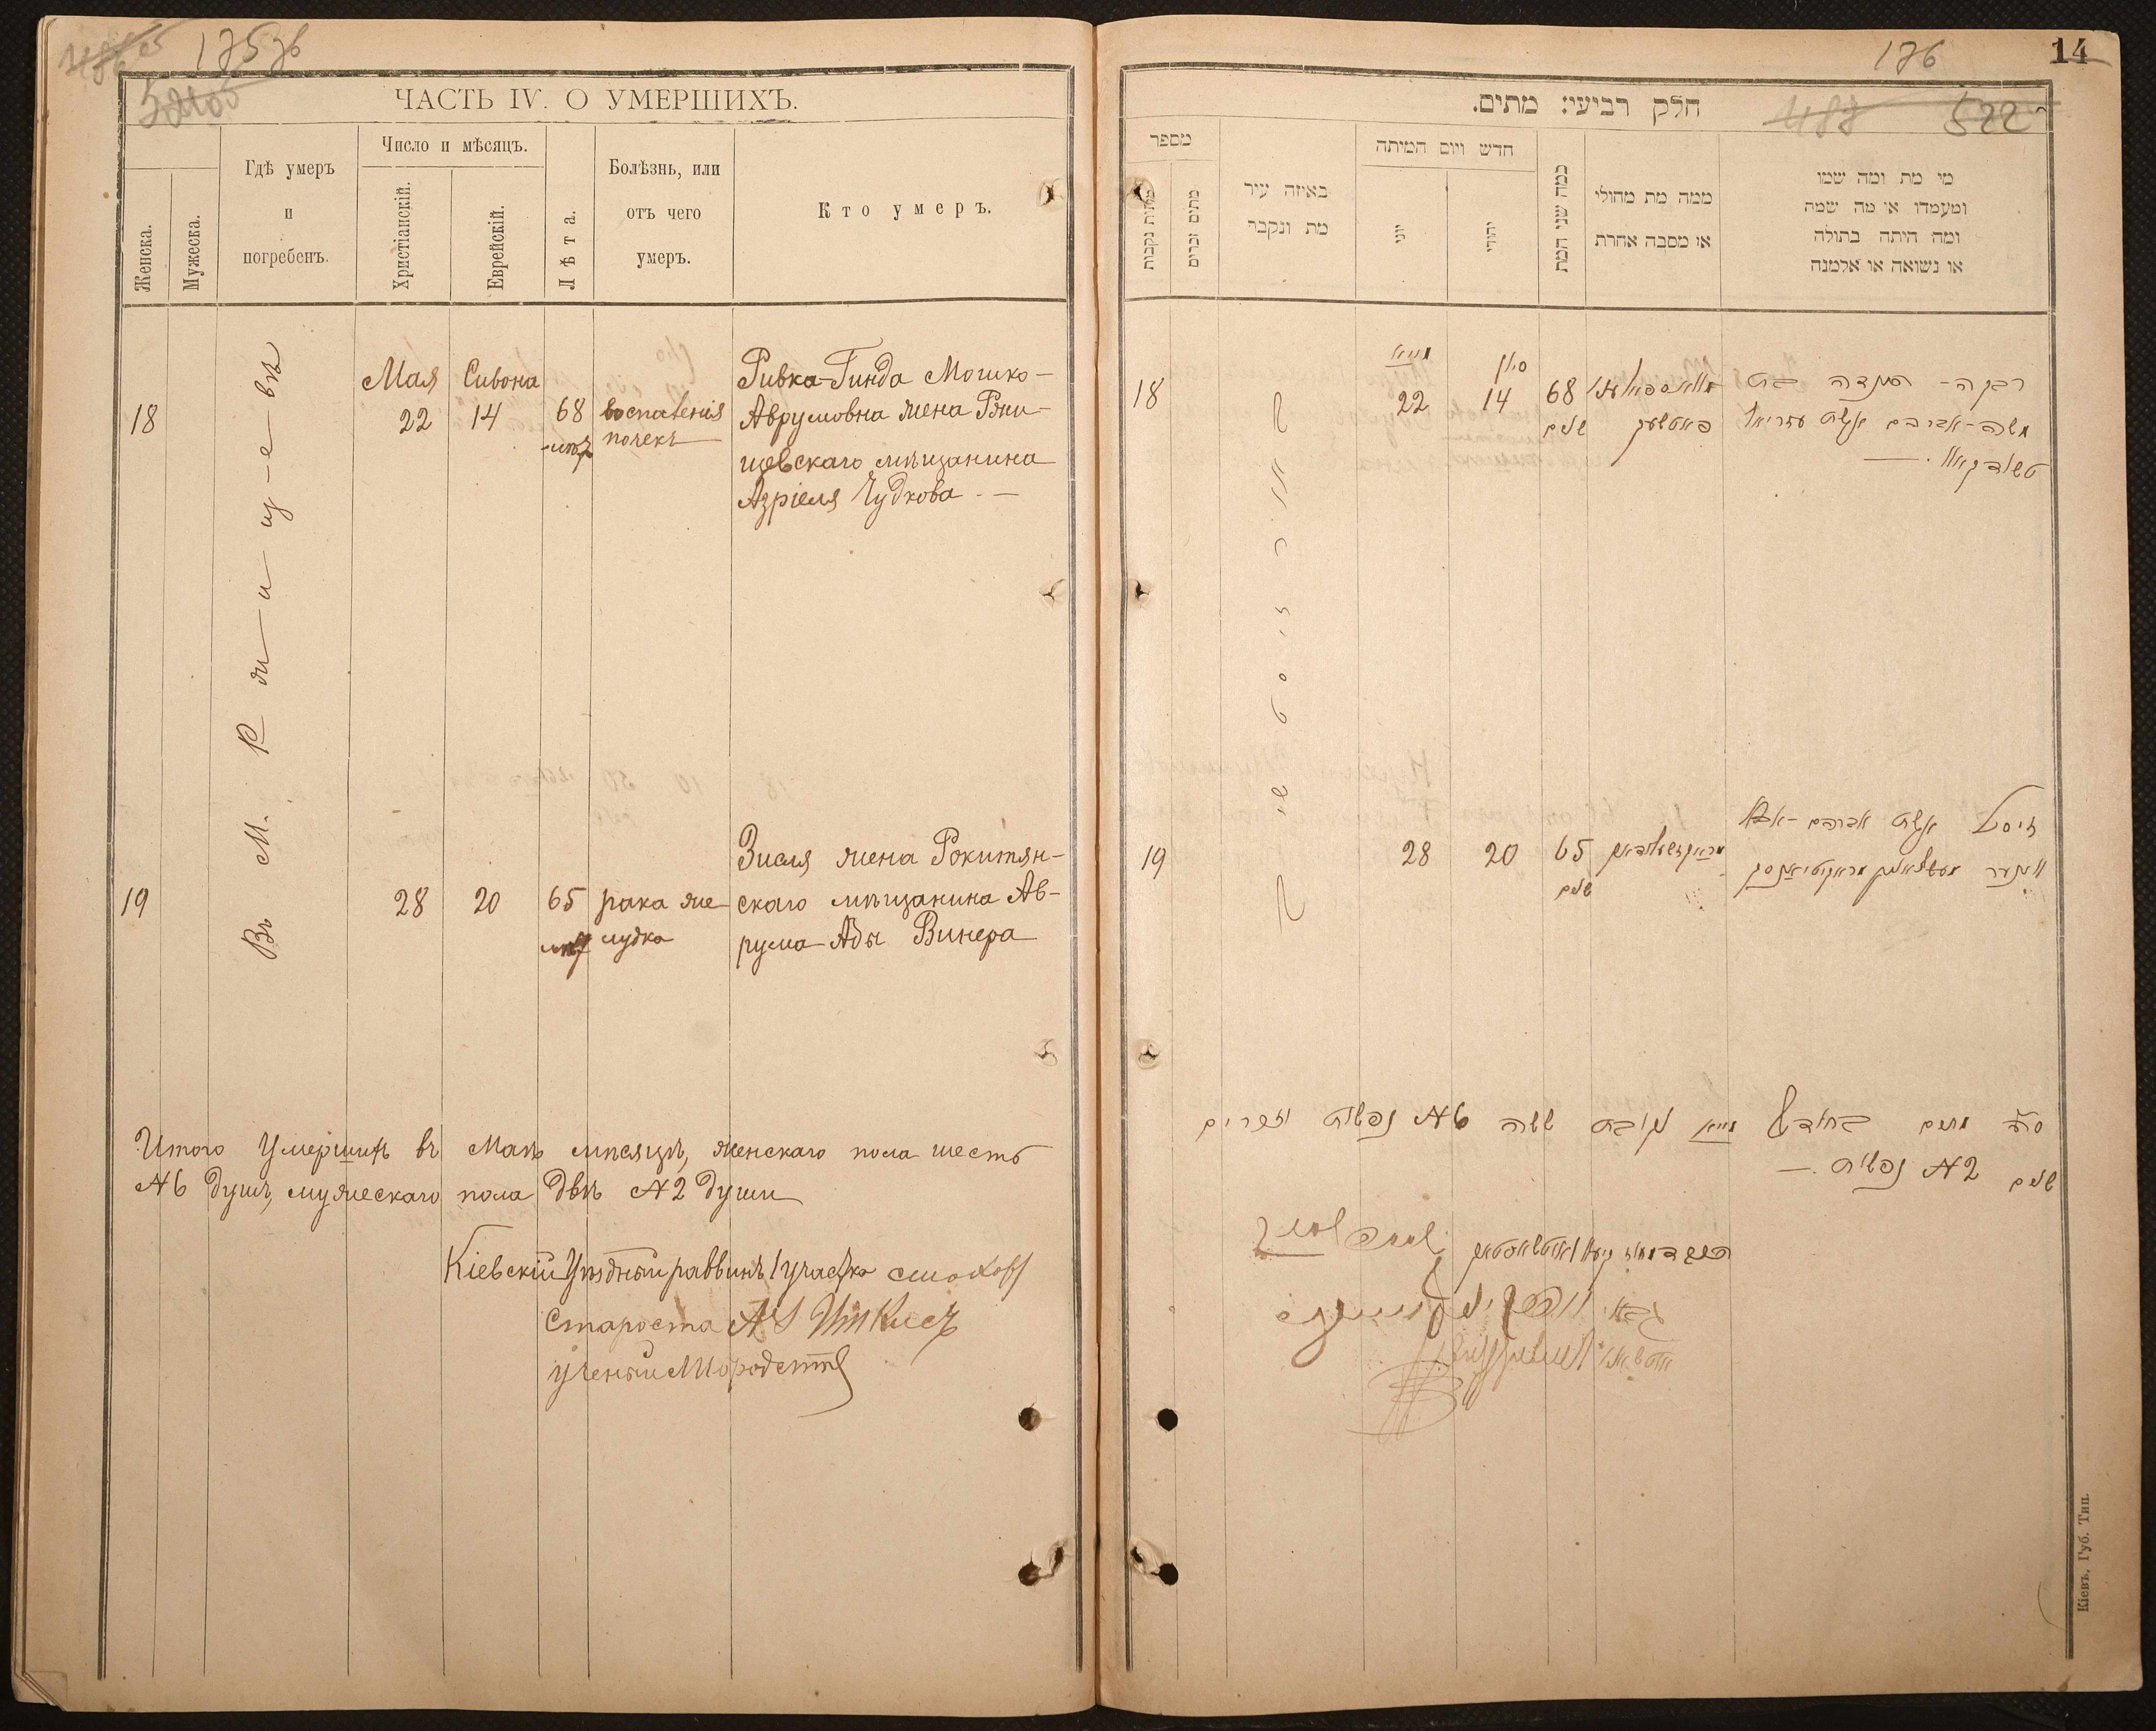 175 об
ЧАСТЬ IV. О УМЕРШИХЪ.
Женска.
Мужеска.
Гдѣ умеръ
и
погребенъ.
Число и мѣсяцъ.
Христіанскій.
Еврейскій.
Лѣта.
Болѣзнь, или
отъ чего
умеръ.
Кто умеръ.
Въ М. Ржищевѣ
Мая Сивона
18 22 14 68 лѣтъ воспаленія почекъ
Ривка-Гинда Мошко-
Аврумовна жена Ржи-
щевскаго мѣщанина
Азріеля Чудкова
19 28 20 65 лѣтъ рака же
лудка
Зисля жена Рокитян-
скаго мѣщанина Ав-
рума-Абы Винера
Итого Умершихъ въ Маѣ мѣсяцѣ, женскаго пола шесть
№6 душъ, мужескаго пола двѣ №2 души
Кіевскій Уѣздный раввинъ 1 участка
Староста
Ученый
176
14
487
522
חלק רביעי: מתים.
מספר
מתות נקבות
מתים זכרים
באיזה עיר
מת ונקבר
חדש ויום המיתה
יוני
יהודי
כמה שני המת
ממה מת מחולי
או מסבה אחרת
מי מת ומה שמו
ומעמדו או מה שמה
ומה היתה בתולה
או נשואה או אלמנה
מייא סיון
18 22 14 68 שנים
רבקה - הינדה בת
משה-אברהם אשת עזריאל
19 28 20 65 שנים
זיסל אשת אברהם-אבא
סה״כ מתים בחודש מייא נקבות ששה №6 נפשות וזכרים
שנים №2 נפשות.—
Кіевъ, Губ. Тип.